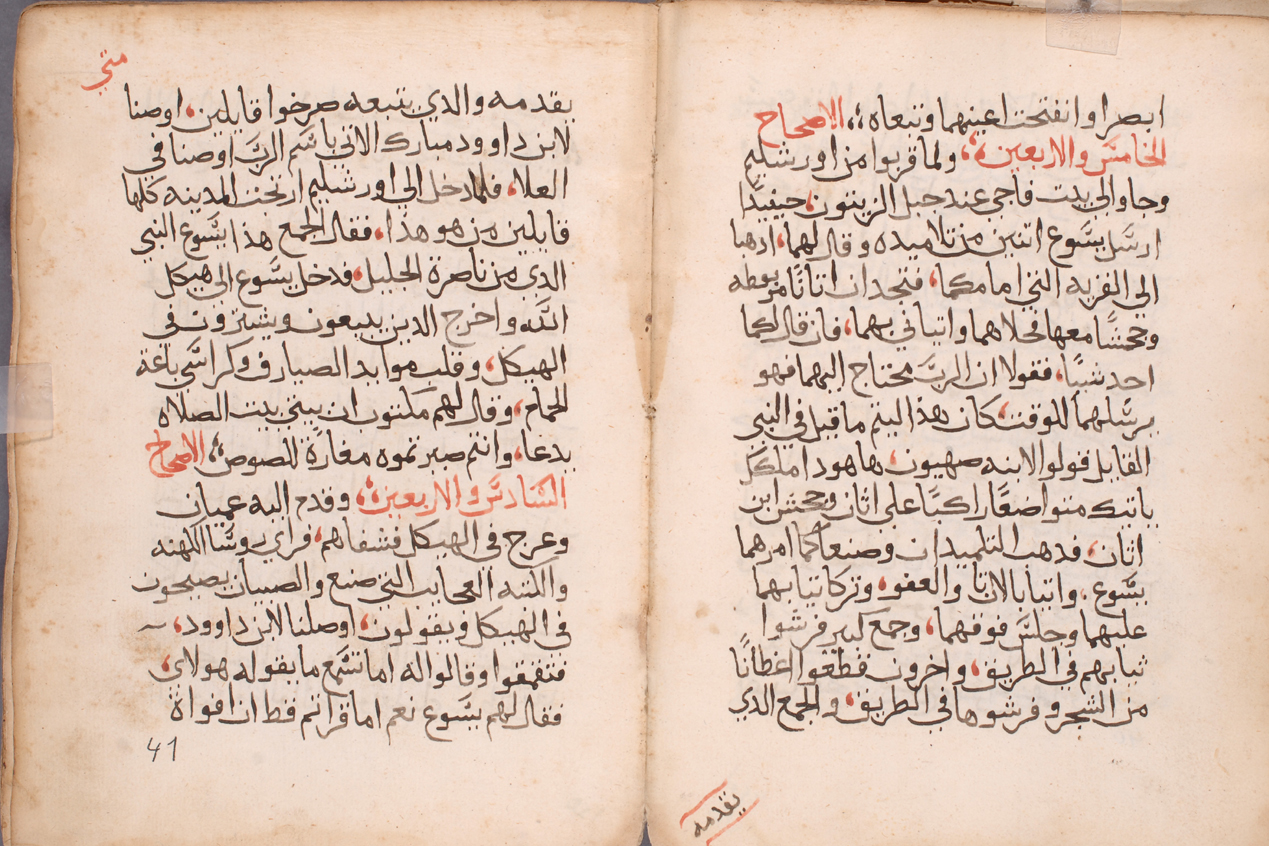 ابصرا وانفتحت اعينهما وتبعاه؛، الاصحاح
الخامس والاربعين؛، ولما قربوا من اورشليم
وجاوا الى بيت فاجي عند جبل الزيتون، حينيدًا
ارسل يسوع اتنين من تلاميده وقال لهما، ادهبا
الي القريه التي امامكما، فتجدان اتانًا مربوطه
وجحشًا معها فحلاهما واتياني بهما، فان قال لكما
احد شيًا، فقولا ان الرب محتاج اليهما فهو
يرسلهما للوقت، كان هذا ليتم ما قيل في النبي
القايل قولوا لابنه صهيون، هاهودا ملكك
ياتيك متواضعًا راكبًا على اتان وجحش ابن
اتان، فدهب التلميدان وصنعا كما امرهما
يسوع، واتيا بالاتان والعفو، وتركا تيابهما
عليهما وجلس فوقهما، وجمع كبير فرشوا
تيابهم في الطريق، واخرون قطعوا اغطانًا
من الشجر وفرشوها في الطريق، والجمع الذي
يقدمه
متي
يقدمه والدي يتبعه صرخوا قايلين، اوصنا
لابن داوود مبارك الاتي باسم الرب اوصنا في
العلا، فلما دخل الي اورشليم ارتجت المدينه كلها
قايلين من هو هذا، فقال الجمع هذا يسوع النبي
الدي من ناصرة الجليل، فدخل يسوع الى هيكل
الله واخرج الدين يبيعون ويشترون في
الهيكل، وقلب موايد الصيارف وكراسي باعة
الحمام، وقال لهم مكتوب ان بيتي بيت الصلاه
يدعا، وانتم صيرتموه مغارة للصوص؛، الاصحاح
السادس والاربعين؛، وقدم اليه عميان
وعرج في الهيكل فشفاهم، فراي روسا الكهنه
والكتبه العجايب التي صنع والصبيان يصيحون
في الهيكل ويقولون، اوصلنا لابن داوود، ~
فتقمقموا وقالوا اله اما تسمع ما يقوله هولاي،
فقال لهم يسوع نعم اما قراتم قط ان افواة
41